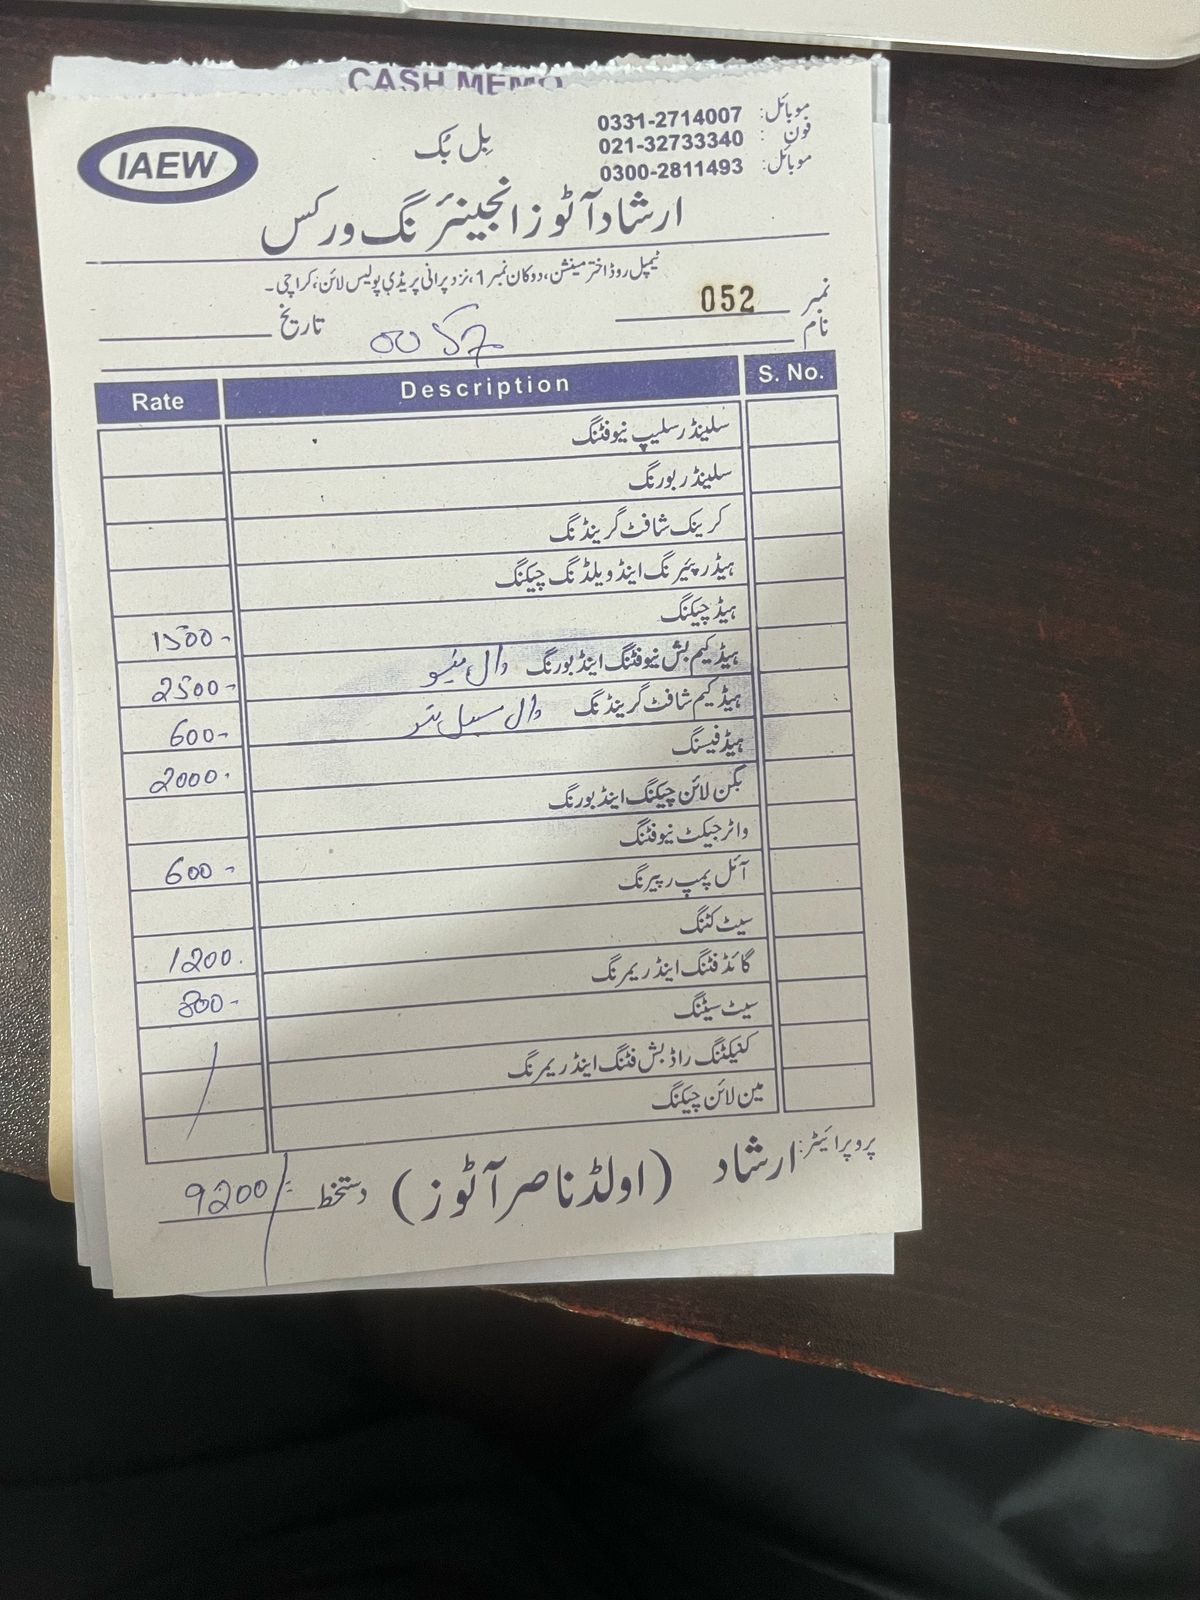 CASH MEMO
IAEW
بِل بُک
موبائل: 0331-2714007
فون : 021-32733340
موبائل: 0300-2811493
ارشاد آٹوز انجینئرنگ ورکس
ٹیمپل روڈ اختر مینشن، دوکان نمبر 1، نزد پرانی پریڈی پولیس لائن، کراچی۔
نمبر 052
نام تاریخ
S. No. Description Rate
سلینڈر سلیپ نیو فٹنگ
سلینڈر بورنگ
کرینک شافٹ گرینڈنگ
ہیڈ رپئیرنگ اینڈ ویلڈنگ چیکنگ
ہیڈ چیکنگ 1500-
ہیڈ کیم بش نیو فٹنگ اینڈ بورنگ 2500-
ہیڈ کیم شافٹ گرینڈنگ 600-
ہیڈ فیسنگ 2000-
بگن لائن چیکنگ اینڈ بورنگ
واٹر جیکٹ نیو فٹنگ 600-
آئل پمپ رپیرنگ
سیٹ کٹنگ 1200.
گائڈ فٹنگ اینڈ ریمرنگ 800-
سیٹ سیٹنگ
کنیکٹنگ راڈ بش فٹنگ اینڈ ریمرنگ
مین لائن چیکنگ
پروپرائیٹر: ارشاد (اولڈ ناصر آٹوز) دستخط 9200/-